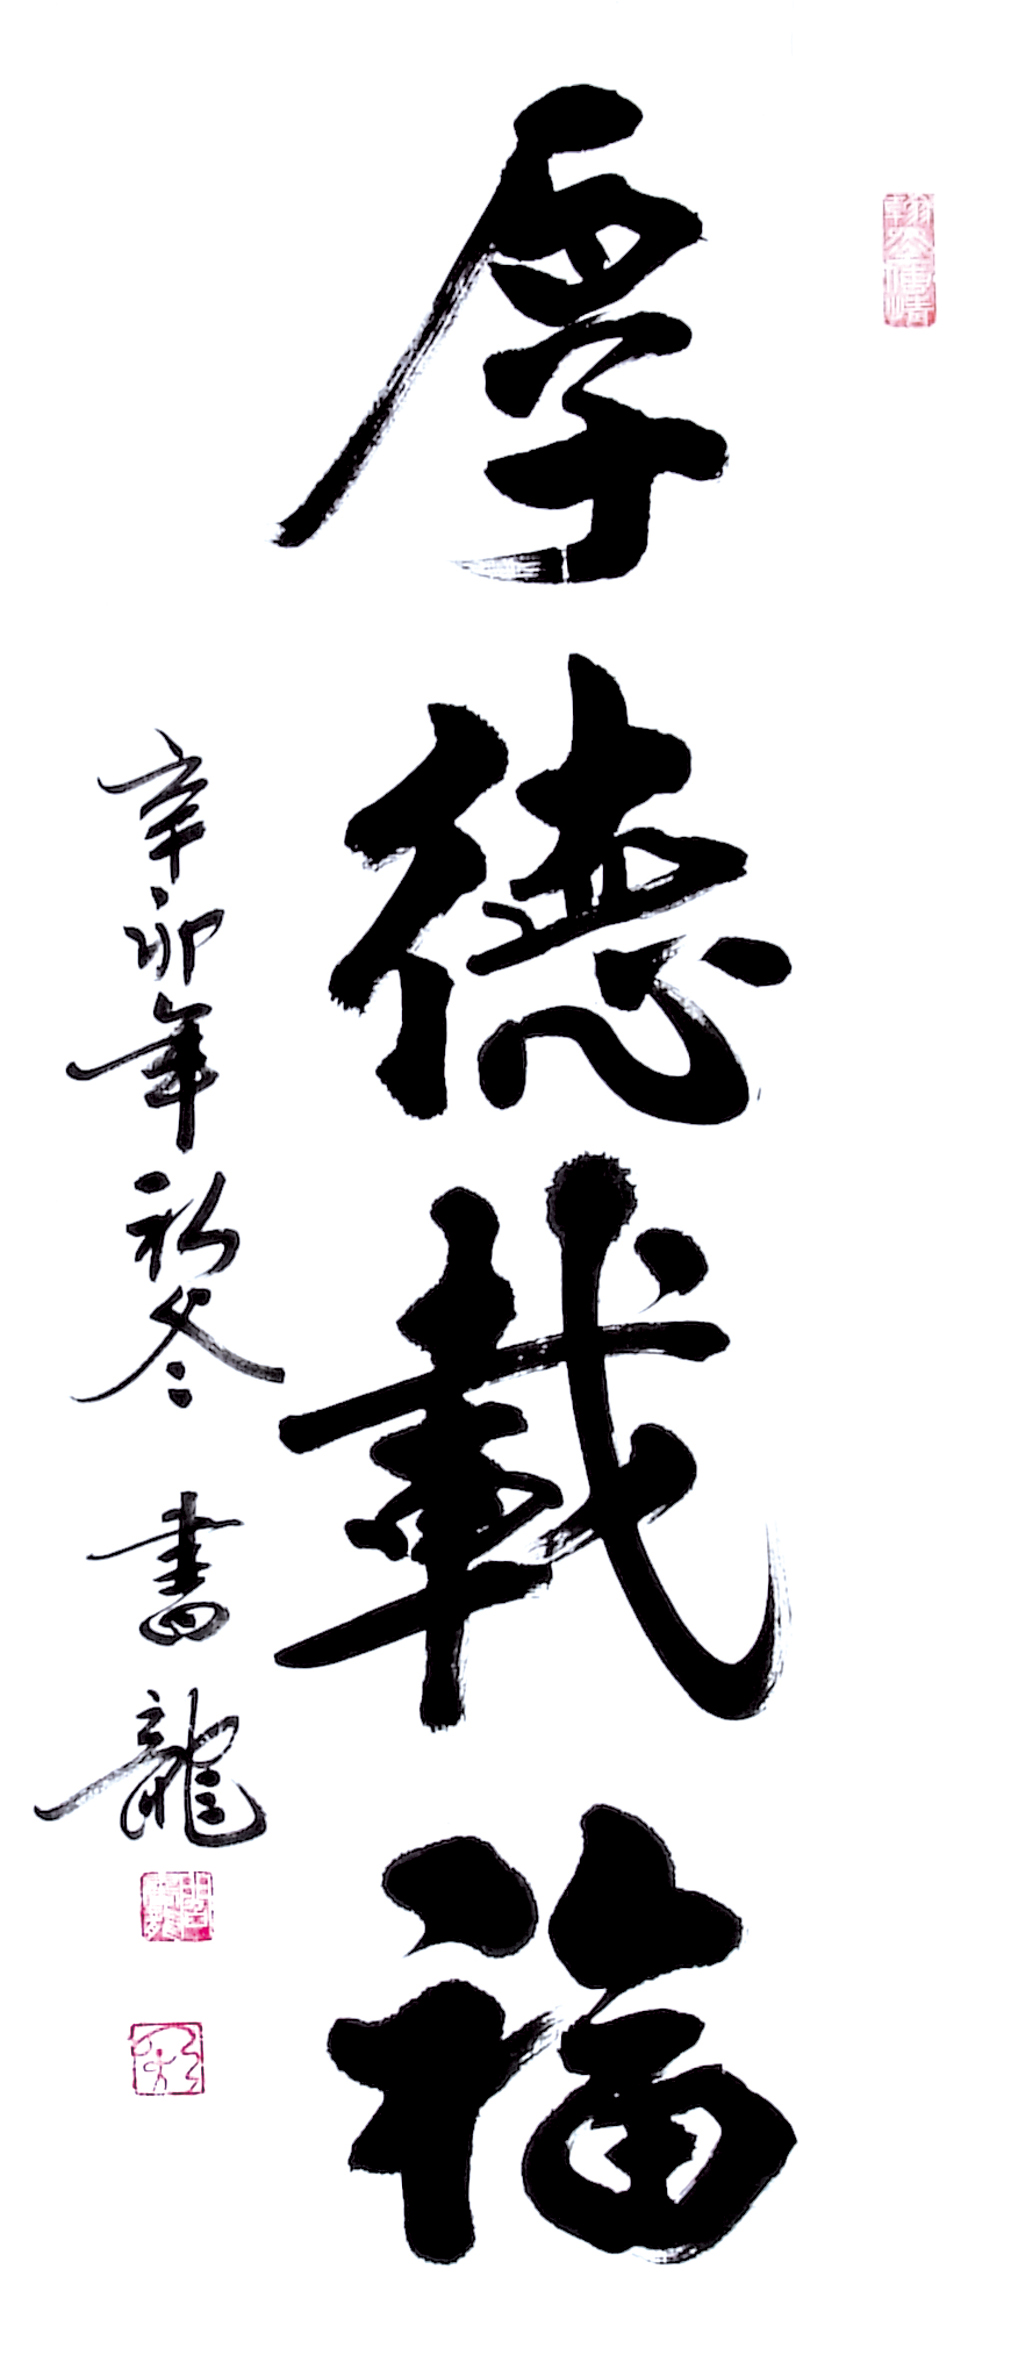 厚德載福
辛卯年初冬 書龍